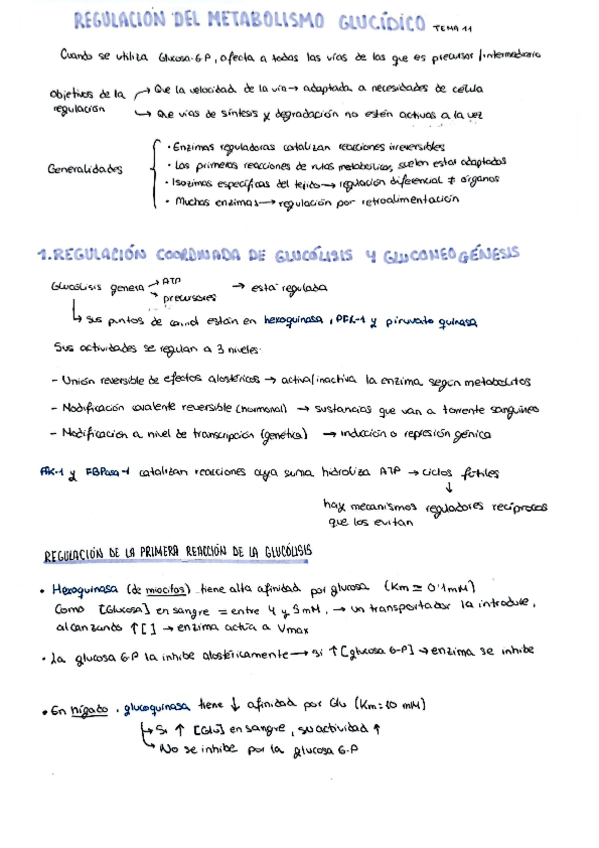 REGULACIÓN DEL METABOLISMO GLUCÍDICO TEMA 11
Cuando se utiliza Glucosa-6P, afecta a todas las vías de las que es precursor/intermediario
Objetivos de la regulación
→ Que la velocidad de la vía → adaptada a necesidades de célula
→ Que vías de síntesis y degradación no estén activas a la vez
Generalidades
· Enzimas reguladoras catalizan reacciones irreversibles
· Las primeras reacciones de rutas metabólicas, suelen estar adaptados
· Isozimas específicas del tejido → regulación diferencial ≠ órganos
· Muchas enzimas → regulación por retroalimentación
1. REGULACIÓN COORDINADA DE GLUCÓLISIS Y GLUCONEOGÉNESIS
Glucólisis genera → ATP → precursores → está regulada
↳ Sus puntos de control están en hexoquinasa, PFK-1 y piruvato quinasa
Sus actividades se regulan a 3 niveles:
- Unión reversible de efectos alostéricos → activa/inactiva la enzima según metabolitos
- Modificación covalente reversible (hormonal) → sustancias que van a torrente sanguíneo
- Modificación a nivel de transcripción (genética) → inducción o represión génica
PFK-1 y FBPasa-1 catalizan reacciones cuya suma hidroliza ATP → ciclos fútiles
↓
hay mecanismos reguladores recíprocos
que los evitan
REGULACIÓN DE LA PRIMERA REACCIÓN DE LA GLUCÓLISIS
• Hexoquinasa (de miocitos) tiene alta afinidad por glucosa (Km ≃ 0'1mM)
Como [Glucosa] en sangre = entre 4 y 5mM, → un transportador la introduce,
alcanzando ↑[ ] → enzima actúa a Vmax
• La glucosa 6-P la inhibe alostéricamente → si ↑ [glucosa 6-P] → enzima se inhibe
• En hígado, glucoquinasa tiene ↓ afinidad por Glu (Km=10 mM)
↳ Si ↑ [Glu] en sangre, su actividad ↑
↳ No se inhibe por la glucosa 6-P